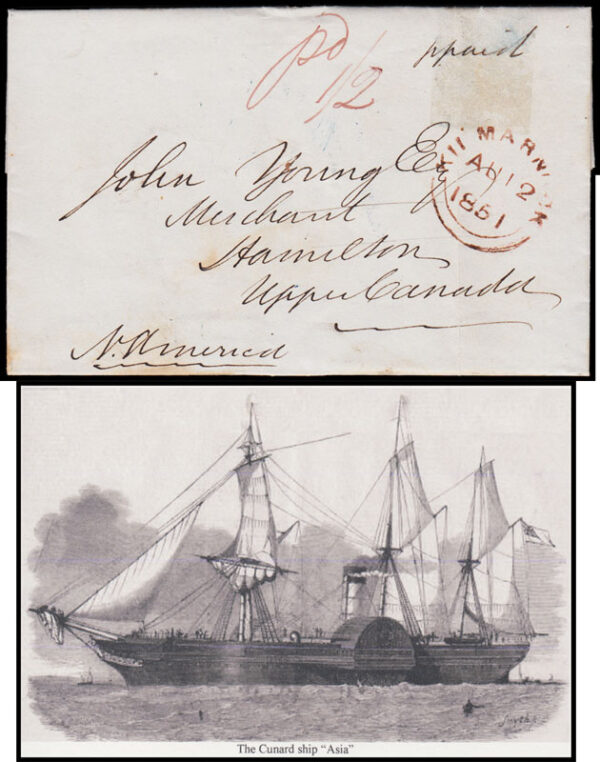 pd
1/2
ppaid
John Young Esq
Merchant
Hamilton
Upper Canada
N. America
AU 12
1851
Smyth
The Cunard ship “Asia”